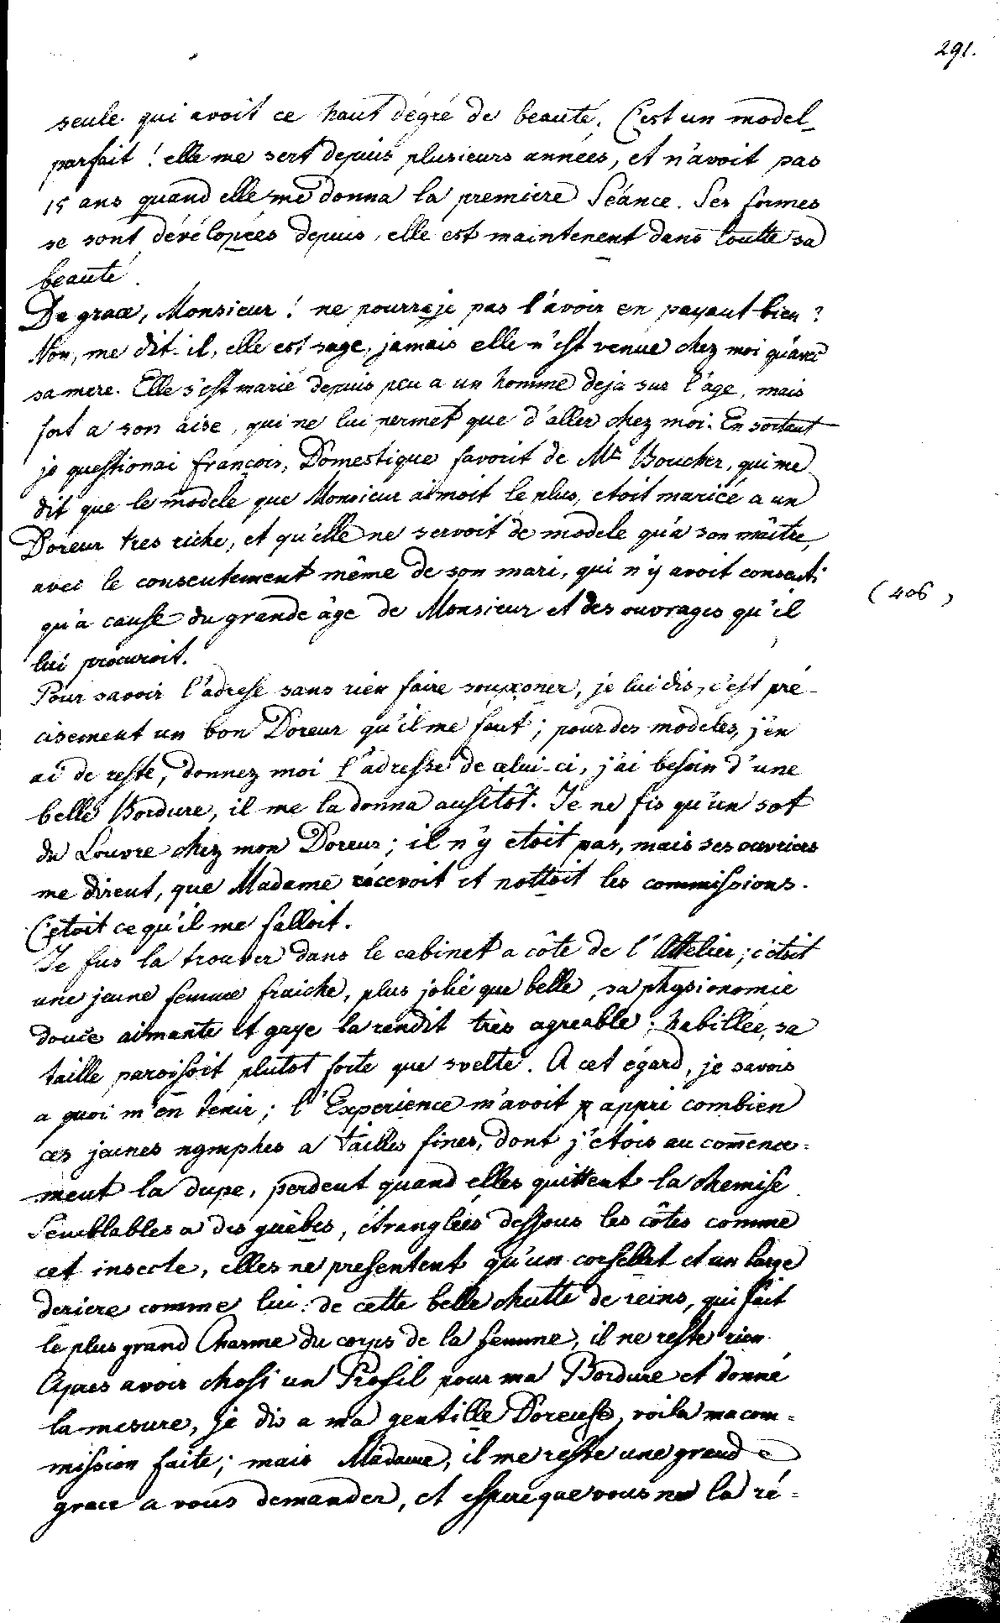 291.
seule qui avoit ce haut dégré de beauté. C'est un model
parfait ! elle me sert depuis plusieurs années, et n'avoit pas
15 ans quand elle me donna la premiere Séance. Ses formes
se sont dévélopées depuis, elle est maintenent dans toutte sa
beauté.
De grace, Monsieur ! ne pourraije pas l'avoir en payant bien ?
Non, me dit-il, elle est sage, jamais elle n'est venue chez moi qu'avec
sa mere. Elle s'est marié depuis peu a un homme deja sur l'âge, mais
fort a son aise, qui ne lui permet que d'aller chez moi. En sortant
je questionai françois, Domestique favorit de Mr Boucher, qui me
dit que le modele que Monsieur aimoit le plus, etoit mariée a un
Doreur tres riche, et qu'elle ne servoit de modele qu'à son maître,
avec le consentement même de son mari, qui n'y avoit consenti
qu'à cause du grande âge de Monsieur et des ouvrages qu'il
(406)
lui procuroit.
Pour savoir l'adresse sans rien faire soupçoner, je lui dis, c'est pré-
cisement un bon Doreur qu'il me faut ; pour des modeles, j'en
ai de reste, donnez moi l'adresse de celui-ci, j'ai besoin d'une
belle Bordure, il me la donna ausitôt. Je ne fis qu'un sot
du Louvre chez mon Doreur ; il n'y etoit pas, mais ses ouvriers
me dirent, que Madame recevoit et nottoit les commissions.
C'etoit ce qu'il me falloit.
Je fus la trouver dans le cabinet a côte de l'Attelier ; c'étoit
une jeune femme fraiche, plus jolie que belle, sa physionomie
douce aimante et gaye la rendit très agreable ; habillée, sa
taille paroisoit plutot forte que svelte. A cet égard, je savois
a quoi m'en tenir ; l'Experience m'avoit appri combien
ces jeunes nymphes a tailles fines, dont j'etois au comence-
ment la dupe, perdent quand elles quittent la chemise
Semblables a des guêbes, étranglées dessous les côtes comme
cet insecte, elles ne presentent qu'un corsellet et un large
deriere comme lui : de cette belle chutte de reins, qui fait
le plus grand Charme du corps de la femme, il ne reste rien.
Apres avoir chosi un Profil pour ma Bordure et donné
la mesure, je dis a ma gentille Doreuse, voila ma com-
mission faite ; mais Madame, il me reste une grande
grace a vous demander, et espere que vous ne la ré-